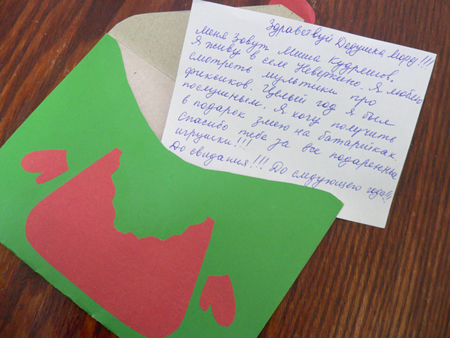 Здравствуй Дедушка мороз!!!
Меня зовут Миша Кудряшов.
Я живу в селе Неверкино. Я люблю
смотреть мультики про
фиксиков. Целый год я был
послушным. Я хочу получить
в подарок змею на батарейках.
Спасибо тебе за все подаренные
игрушки!!!
До свидания!!! До следующего года!!!